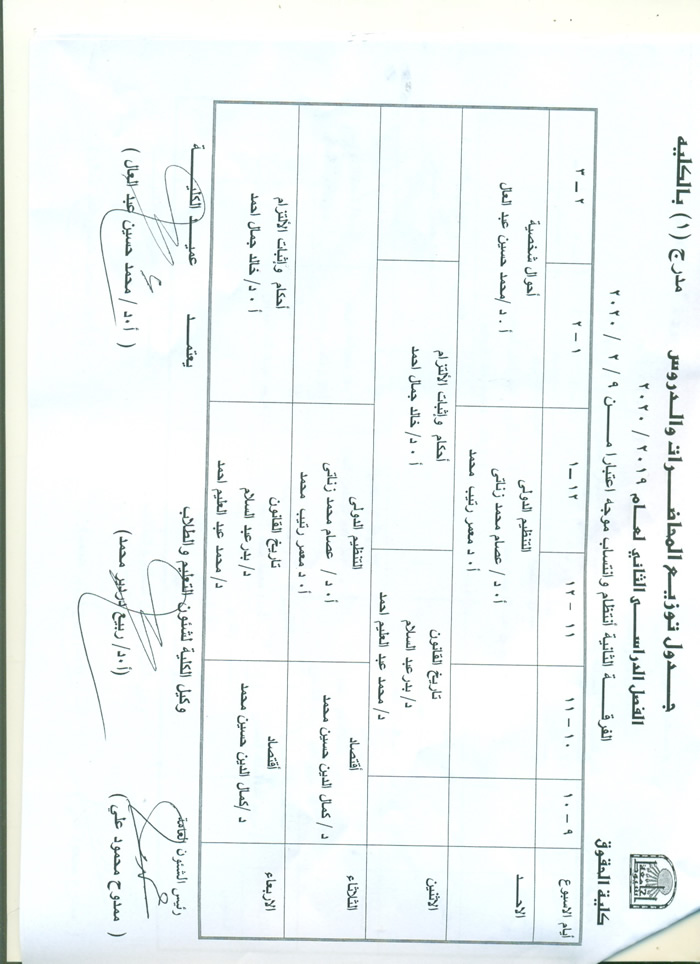 جامعة أسيوط
كلية الحقوق
جدول توزيع المحاضرات والدروس مدرج (١) بالكليه
الفصل الدراسى الثاني لعام ٢٠١٩ / ٢٠٢٠
الفرقة الثانية أنتظام وانتساب موجه اعتبارا من ٩ / ٢ / ٢٠٢٠
أيام الاسبوع ٩ – ١٠ ١٠ – ١١ ١١ – ١٢ ١٢ – ١ ١ – ٢ ٢ – ٣
الاحد
التنظيم الدولى
أ.د / عصام محمد زناتى
أ.د معمر رتيب محمد
أحوال شخصية
أ.د/محمد حسين عبد العال
الاثنين
تاريخ القانون
د/ بدر عبد السلام
د/ محمد عبد العليم احمد
أحكام وإثبات الألتزام
أ.د/ خالد جمال احمد
الثلاثاء
أقتصاد
د/ كمال الدين حسين محمد
التنظيم الدولى
أ.د / عصام محمد زناتى
أ.د معمر رتيب محمد
الاربعاء
أقتصاد
د/كمال الدين حسين محمد
تاريخ القانون
د/ بدر عبد السلام
د/ محمد عبد العليم احمد
أحكام وإثبات الألتزام
أ.د/ خالد جمال احمد
يعتمد
رئيس الشئون العامة
( ممدوح محمود علي )
وكيل الكلية لشئون التعليم والطلاب
(أ.د/ ربيع دردير محمد)
عميد الكلية
( أ.د/ محمد حسين عبد العال )